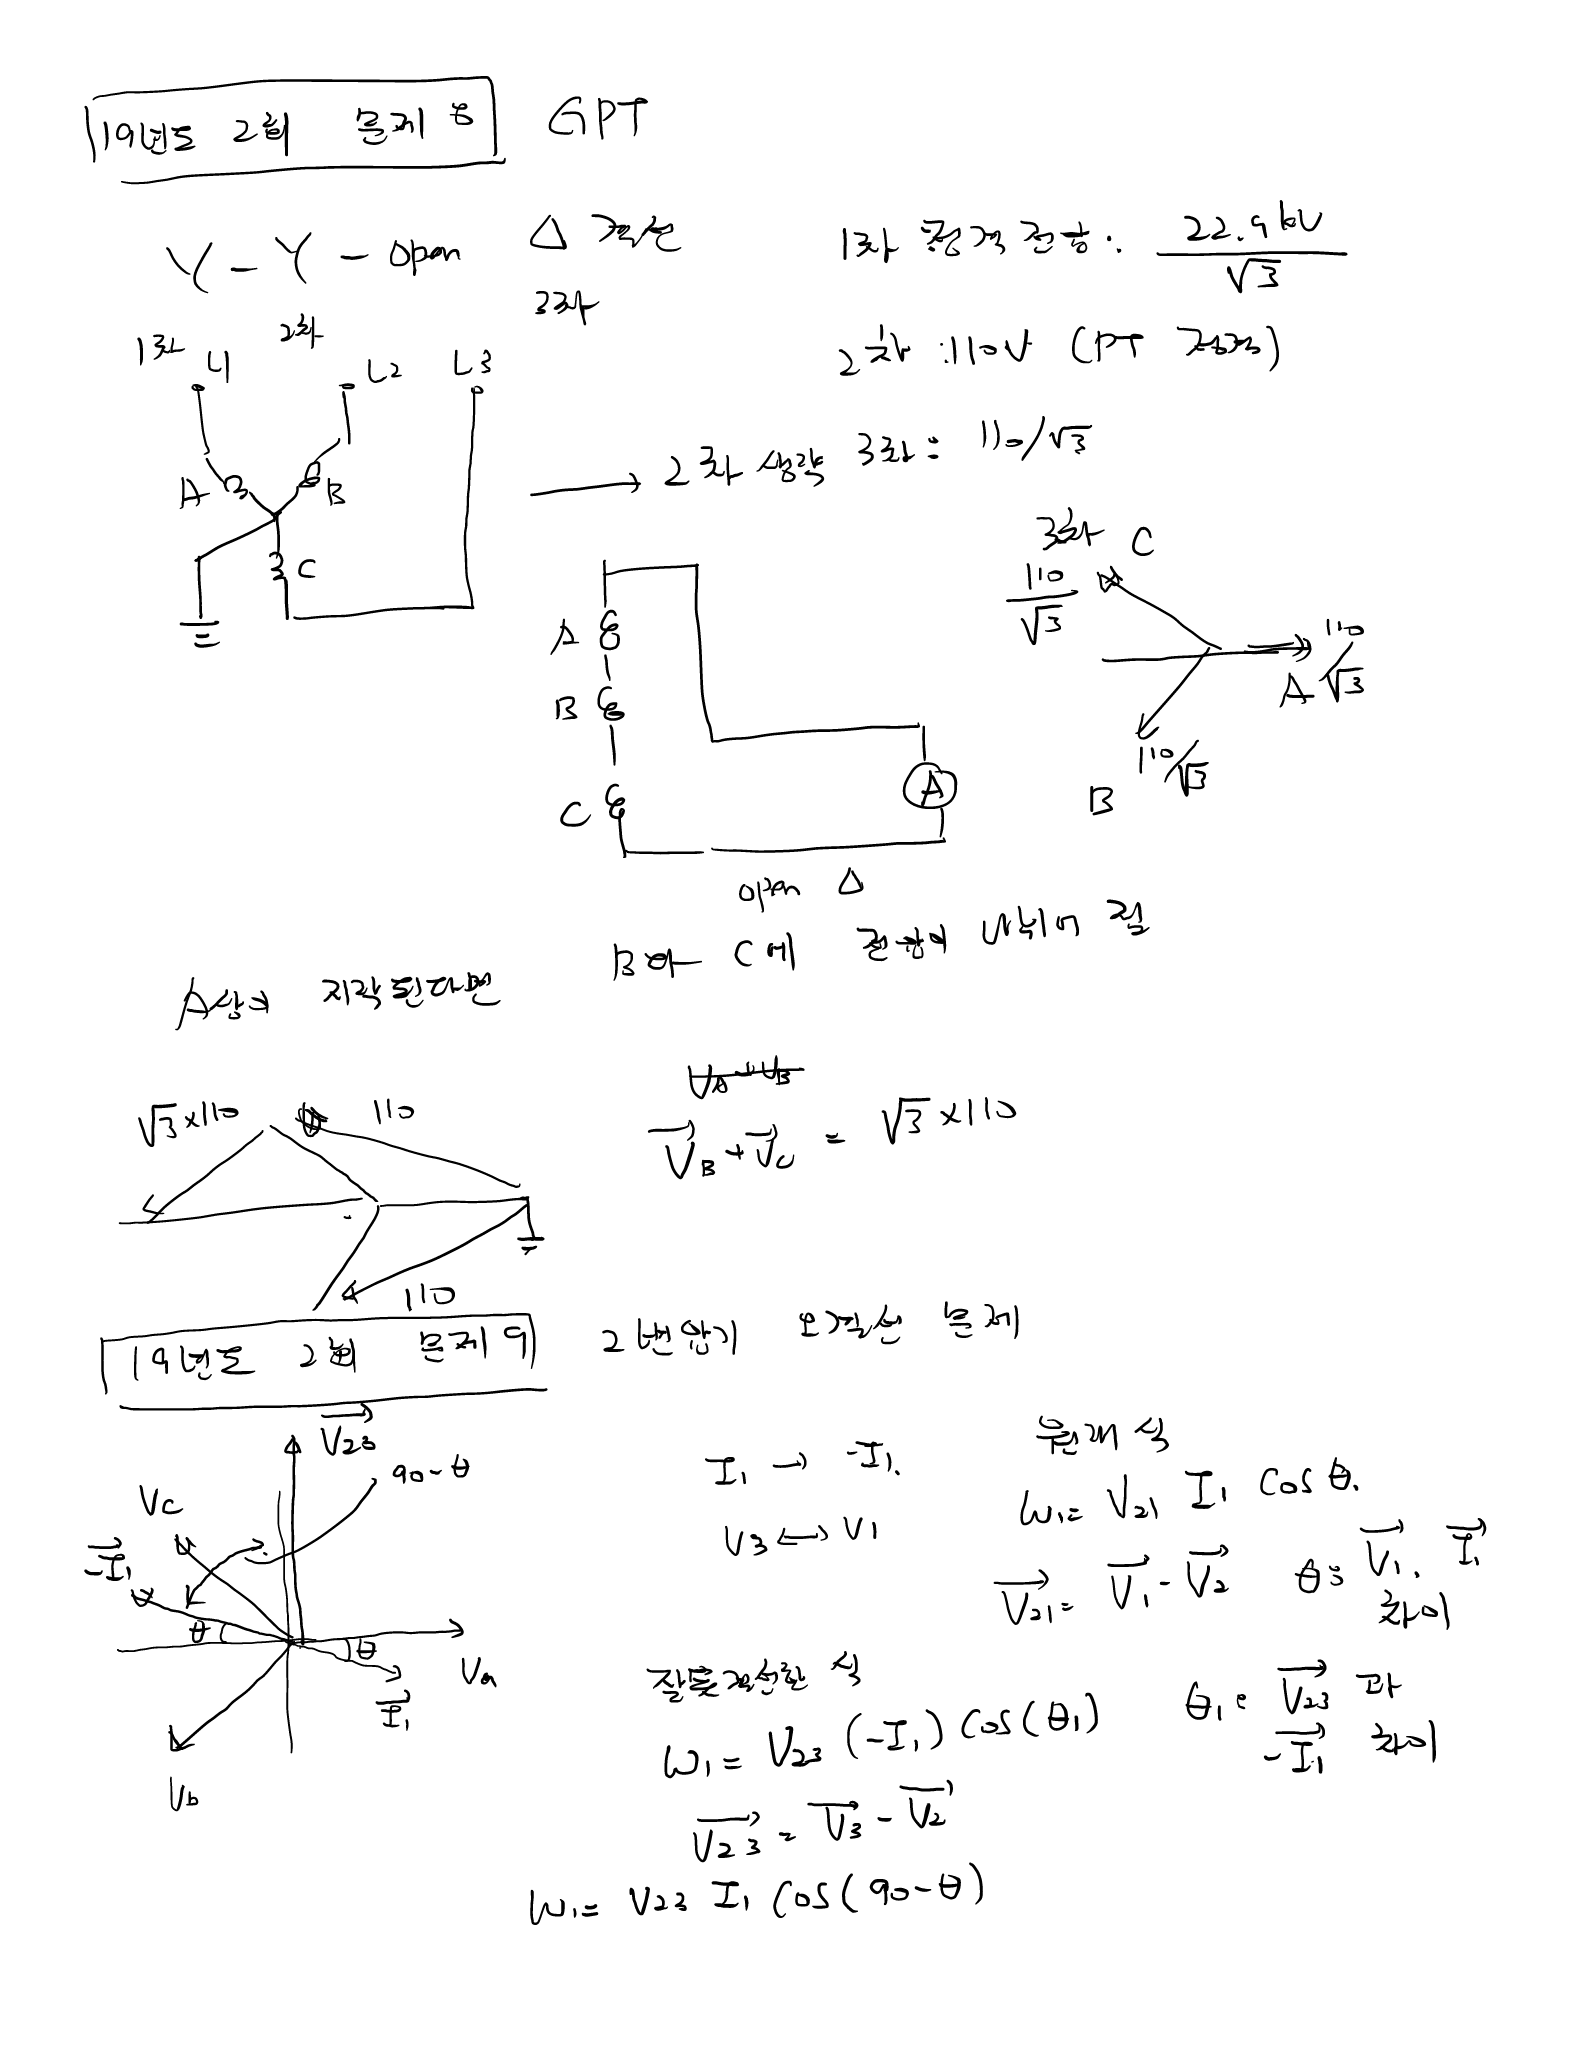 19년도 2회 문제 8
GPT
Y - Y - open Δ 결선
1차 2차 3차
1차 정격 전압 : 22.9kV / √3
2차 : 110V (PT 정격)
L1 L2 L3
A B
C
→ 2차 생략 3차 : 110/√3
3차 C
110/√3
110/√3
A
110/√3
B
A
B
C
A
open Δ
A상이 지락된다면 B와 C에 전압이 나뉘어 짐
√3×110 110
110
V_A + V_B
V_B + V_C = √3 ×110
19년도 2회 문제 9
2번 압기 오결선 문제
V23
90-θ
Vc
-I1
θ θ
Va
I1
Vb
I1 → -I1.
V3 ↔ V1
원래 식
W1= V21 I1 cosθ.
V21= V1 - V2 θ: V1, I1 차이
잘못결선한 식
W1= V23 (-I1) cos(θ1)
θ1: V23 과 -I1 차이
V23 = V3 - V2
W1= V23 I1 cos(90-θ)